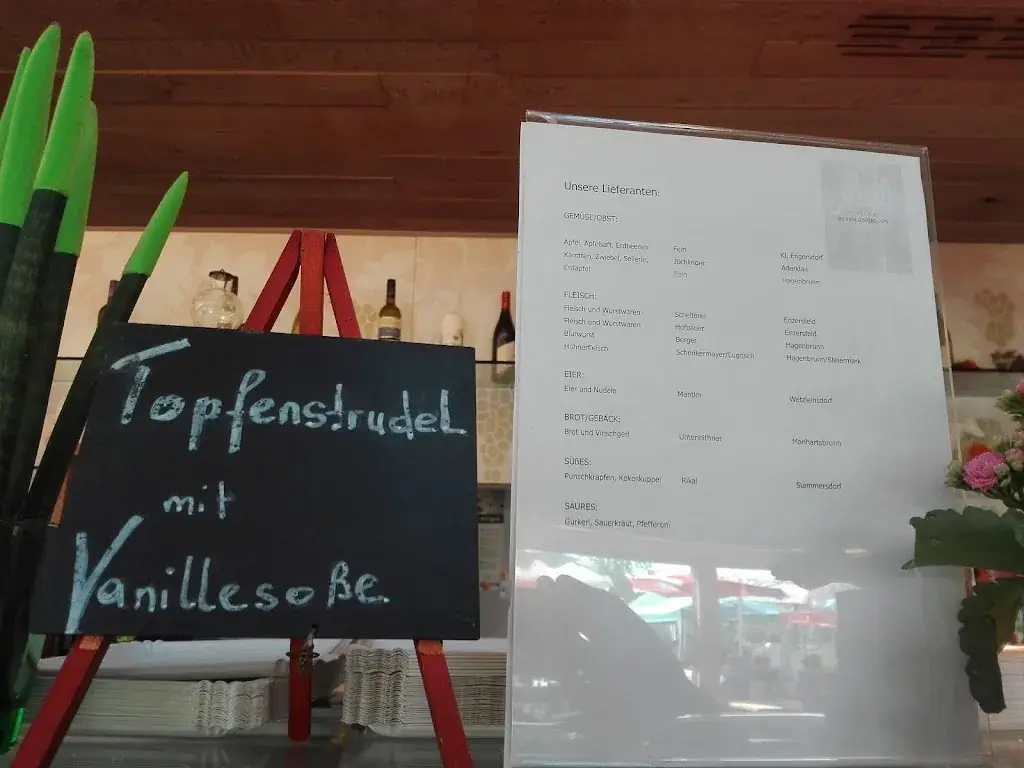 Topfenstrudel
mit
Vanillesoße
Unsere Lieferanten:
GEMÜSE/OBST:
Apfel, Apfelsaft, Erdbeeren Fein Kl. Engersdorf
Karotten, Zwiebel, Sellerie, Jöchlinger Aderklaa
Erdäpfel Hagenbrunn
FLEISCH:
Fleisch und Wurstwaren Scheiterer Enzersfeld
Fleisch und Wurstwaren Hofbauer Enzersfeld
Blunwurst Berger Hagenbrunn
Hühnerfleisch Schenkermayer/Lugitsch Hagenbrunn/Steiermark
EIER:
Eier und Nudeln Mantler Wetzleinsdorf
BROT/GEBÄCK:
Brot und Vinschgerl Manhartsbrunn
SÜßES:
Punschkrapfen, Kokoskuppel Rikal Stammersdorf
SAURES:
Gurkerl, Sauerkraut, Pfefferoni
IN HAGENBRUNN